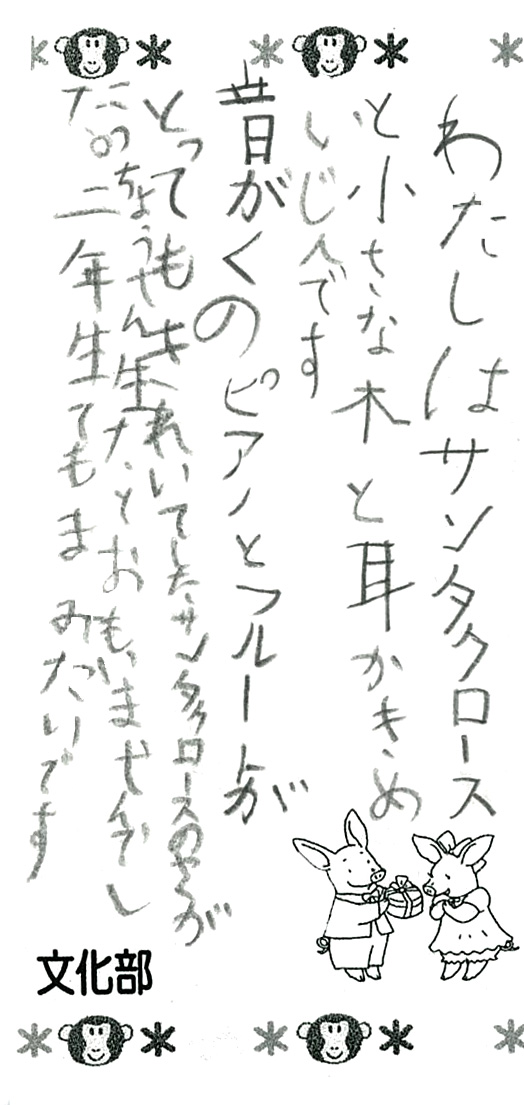 わたしはサンタクロース
と小さな木と耳かきめ
いじんです
昔がくのピアノとフルートが
とってもきれいてしたサンタクロースのやくが
ちょうせん生たとおもいませんでし
たの二年生てもま みたいです
文化部